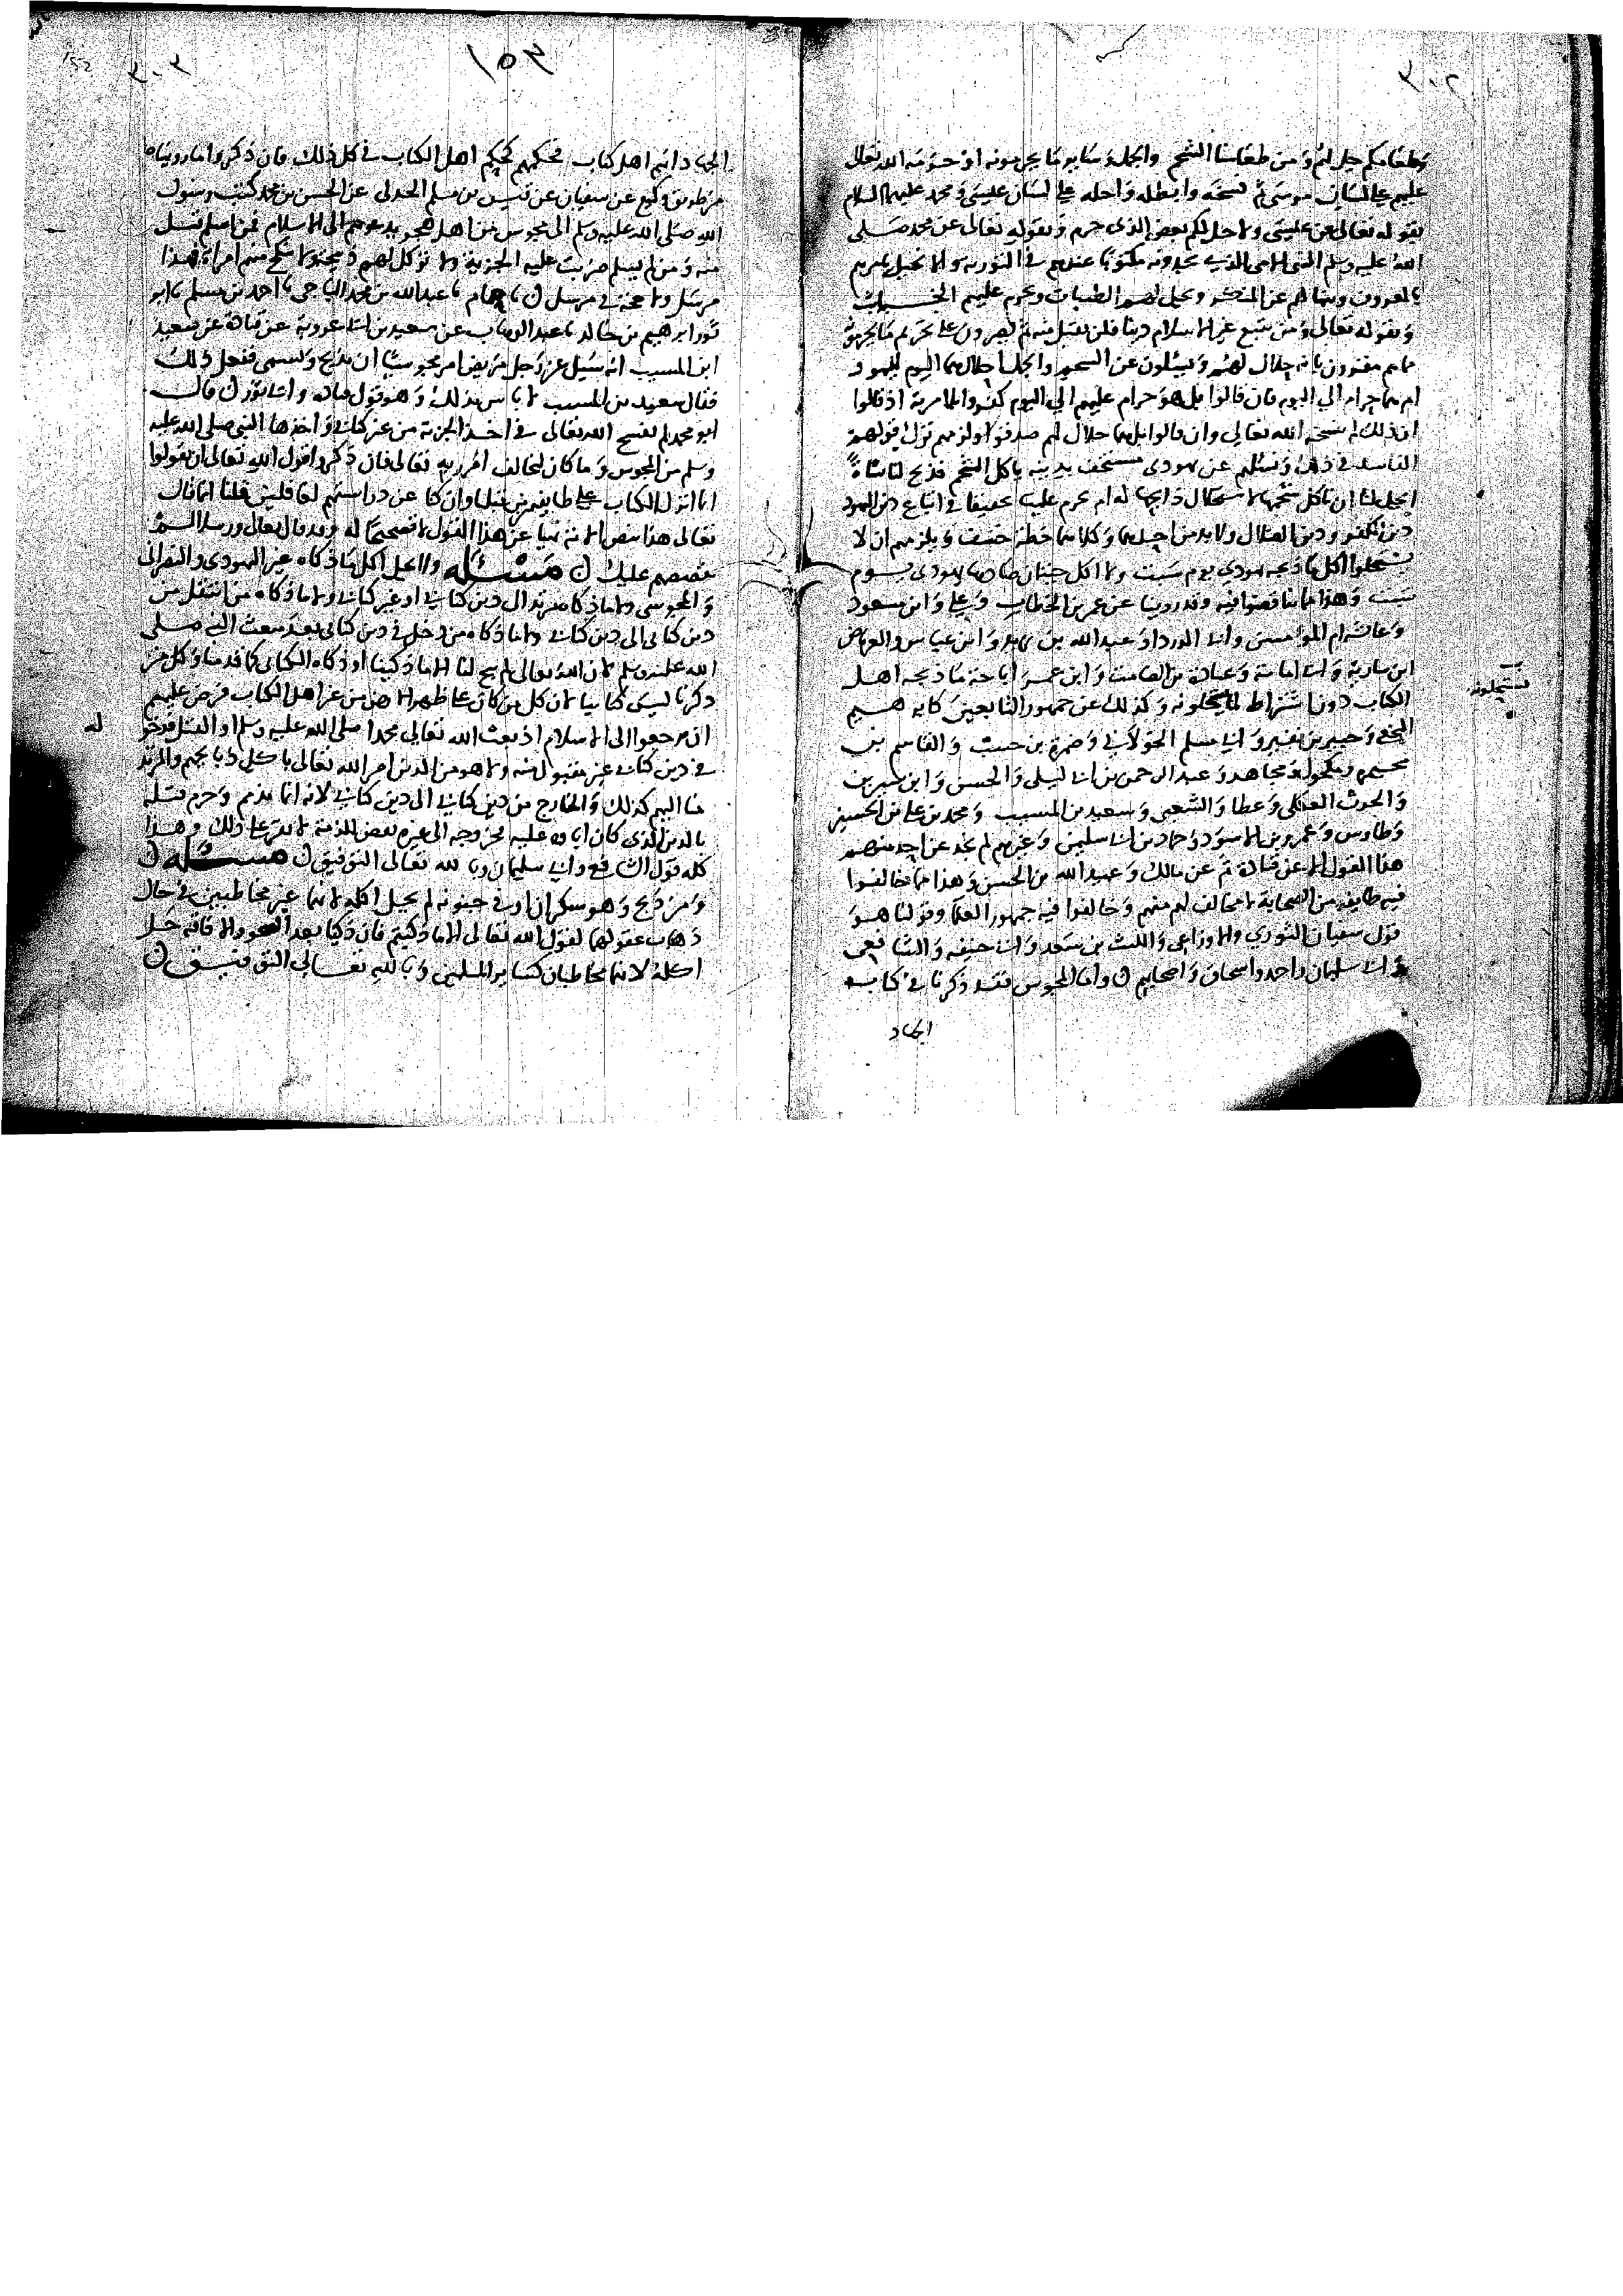 ٢٠٢
وطعامكم حل لهم ومن طعامنا الشحم والجمل وسائر ما يحرمونه او حرمه الله تعالى
عليهم على لسان موسى ثم نسخه وابطله واحله على لسان عيسى ومحمد عليهما السلام
بقوله تعالى عن عيسى ولاحل لكم بعض الذي حرم وبقوله تعالى عن محمد صلى
الله عليه وسلم النبي الامي الذي يجدونه مكتوبا عندهم في التورية والانجيل يامرهم
بالمعروف وينهاهم عن المنكر ويحل لهم الطيبات ويحرم عليهم الخبايث
وبقوله تعالى ومن يبتغ غير الاسلام دينا فلن يقبل منه ثم يصرون على تحريم ما يحرمونه
مما هم مقرون بانه حلال لهم ويسئلون عن الشحم والجمل احلال هما اليوم لليهود
ام هما حرام الى اليوم فان قالوا بل هو حرام عليهم الى اليوم كفروا بلا مرية اذ قالوا
ان ذلك لم ينسخه الله تعالى وان قالوا بل هما حلال لهم صدقوا ولزمهم ترك قولهم
الفاسد في ذلك ونسئلهم عن يهودي مستخف بدينه ياكل الشحم فذبح لنا شاة
ايحل لنا ان ناكل شحمها لاستحلال ذابحها له ام يحرم علينا تحقيقا في اتباع دين اليهود
دين الكفر ودين الضلال ولابد من احدهما وكلاهما خطة خسف ويلزمهم ان لا
يستحلوا اكل ما ذبحه يهودي يوم سبت ولا اكل حيتان صادها يهودي يوم
سبت وهذا مما تناقضوا فيه وقد روينا عن عمر بن الخطاب وعلي وابن مسعود
وعائشة ام المؤمنين وابي الدرداء وعبدالله بن يزيد وابن عباس والعرباض
ابن سارية وابي امامة وعبادة بن الصامت وابن عمر اباحة ما ذبحه اهل
الكتاب دون اشتراط لما يستحلونه وكذلك عن جمهور التابعين كابراهيم
النخعي وجبير بن نفير وابي مسلم الخولاني وضمرة بن حبيب والقاسم بن
مخيمرة ومكحول ومجاهد وعبد الرحمن بن ابي ليلى والحسن وابن سيرين
والحرث العكلي وعطا والشعبي وسعيد بن المسيب ومحمد بن علي بن الحسين
وطاوس وعمرو بن الاسود وحماد بن ابي سليمن وغيرهم لم نجد عن احد منهم
هذا القول الا عن قتادة ثم عن مالك وعبيد الله بن الحسن وهذا مما خالفوا
فيه طايفة من الصحابة لا مخالف لهم منهم وخالفوا فيه جمهور العلماء وقولنا هو
قول سفيان الثوري والاوزاعي والليث بن سعد وابي حنيفه والشافعي
وابي سليمان واحمد واسحاق واصحابهم ن واما المجوس فقد ذكرنا في كتاب
الجهاد
يستحلونه
١٥٣
٢٠٣
152
الجهاد انهم اهل كتاب فحكمهم كحكم اهل الكتاب في كل ذلك فان ذكروا ما رويناه
من طريق وكيع عن سفيان عن قيس بن مسلم الجدلي عن الحسن بن محمد كتب رسول
الله صلى الله عليه وسلم الى مجوس من اهل هجر يدعوهم الى الاسلام فمن اسلم قبل
منه ومن لم يسلم ضربت عليه الجزية ولا توكل لهم ذبيحة ولا تنكح منهم امراة فهذا
مرسل ولا حجة في مرسل ن نا حمام نا عبدالله بن محمد الباجي نا احمد بن مسلم نا ابو
ثور ابرهيم بن خالد نا عبد الوهاب عن سعيد بن ابي عروبة عن قتادة عن سعيد
ابن المسيب انه سئل عن رجل مريض امر مجوسيا ان يذبح ويسمي ففعل ذلك
فقال سعيد بن المسيب لا باس بذلك وهو قول قتادة وابي ثور ن قال
ابو محمد لم يفسح الله تعالى في اخذ الجزية من غير كتابي واخذها النبي صلى الله عليه
وسلم من المجوس وما كان ليخالف امر ربه تعالى فان ذكروا قول الله تعالى ان تقولوا
انما انزل الكتاب على طايفتين من قبلنا وان كنا عن دراستهم لغافلين قلنا انما قال
تعالى هذا نهيا عن هذا القول لا تصحيحا له وقد قال تعالى ورسلا لم
نقصصهم عليك ن مسئلة ولا يحل اكل ما ذكاه غير اليهودي والنصراني
والمجوسي ولا ما ذكاه مرتد الى دين كتابي او غير كتابي ولا ما ذكاه من انتقل من
دين كتابي الى دين كتابي ولا ما ذكاه من دخل في دين كتابي بعد مبعث النبي صلى
الله عليه وسلم لان الله تعالى لم يبح لنا الا ما ذكينا او ذكاه الكتابي كما قدمنا وكل من
ذكرنا ليس كتابيا لان كل من كان على ظهر الارض من غير اهل الكتاب فرض عليهم
ان يرجعوا الى الاسلام اذ بعث الله تعالى محمدا صلى الله عليه وسلم او القتل فدخوله
في دين كتابي غير مقبول منه ولا هو من الذين امر الله تعالى باكل ذبايحهم والمرتد
منا اليهم كذلك والخارج من دين كتابي الى دين كتابي لانه انما تذمم وحرم قتله
بالدين الذي كان اباوه عليه فخروجه الى غيره نقض للذمة لا يقر على ذلك وهذا
كله قول الشافعي وابي سليمان وبالله تعالى التوفيق ن مسئلة ن
ومن ذبح وهو سكران او في جنونه لم يحل اكله لانهما غير مخاطبين في حال
ذهاب عقولهما لقول الله تعالى الا ما ذكيتم فان ذكيا بعد الصحو والافاقة حل
اكله لانهما مخاطبان كسائر المسلمين وبالله تعالى التوفيق ن